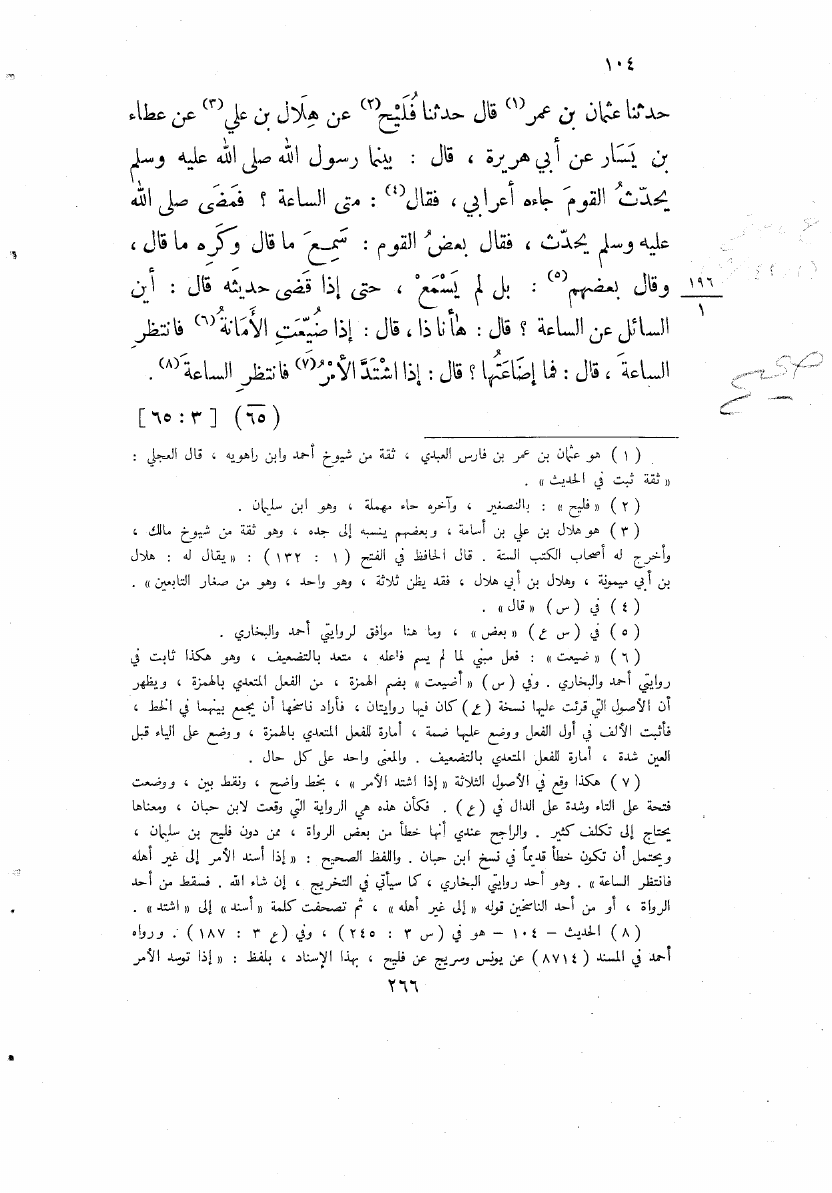 ١٠٤
حدثنا عثمان بن عمر(١) قال حدثنا فُلَيْح(٢) عن هِلَال بن علي(٣) عن عطاء
بن يَسَار عن أبي هريرة ، قال : بينما رسول الله صلى الله عليه وسلم
يحدّثُ القومَ جاءه أعرابي ، فقال(٤) : متى الساعة ؟ فَمَضَى صلى الله
عليه وسلم يحدّث ، فقال بعضُ القوم : سَمِعَ ما قال وكَرِه ما قال ،
وقال بعضهم(٥) : بل لم يَسْمَعْ ، حتى إذا قَضَى حديثَه قال : أين
١٩٦
١
السائل عن الساعة ؟ قال : هٰأنا ذا ، قال : إذا ضُيِّعَتِ الأَمَانةُ(٦) فانتظرِ
الساعةَ ، قال : فما إضَاعَتُها ؟ قال : إذا اشْتَدَّ الأمْرُ(٧) فانتظرِ الساعةَ(٨) .
صحيح
(٦٥) [٣ : ٦٥]
(١) هو عثمان بن عمر بن فارس العبدي ، ثقة من شيوخ أحمد وابن راهويه ، قال العجلي :
« ثقة ثبت في الحديث » .
(٢) « فليح » : بالتصغير ، وآخره حاء مهملة ، وهو ابن سليمان .
(٣) هو هلال بن علي بن أسامة ، وبعضهم ينسبه إلى جده ، وهو ثقة من شيوخ مالك ،
وأخرج له أصحاب الكتب الستة . قال الحافظ في الفتح (١ : ١٣٢) : « يقال له : هلال
بن أبي ميمونة ، وهلال بن أبي هلال ، فقد يظن ثلاثة ، وهو واحد ، وهو من صغار التابعين » .
(٤) في (س) « قال » .
(٥) في (س ع) « بعض » ، وما هنا موافق لروايتي أحمد والبخاري .
(٦) « ضيعت » : فعل مبني لما لم يسم فاعله ، متعد بالتضعيف ، وهو هكذا ثابت في
روايتي أحمد والبخاري . وفي (س) « أضيعت » بضم الهمزة ، من الفعل المتعدي بالهمزة ، ويظهر
أن الأصول التي قرئت عليها نسخة (ع) كان فيها روايتان ، فأراد ناسخها أن يجمع بينهما في الخط ،
فأثبت الألف في أول الفعل ووضع عليها ضمة ، أمارة للفعل المتعدي بالهمزة ، ووضع على الياء قبل
العين شدة ، أمارة للفعل المتعدي بالتضعيف . والمعنى واحد على كل حال .
(٧) هكذا وقع في الأصول الثلاثة « إذا اشتد الأمر » ، بخط واضح ، ونقط بين ، ووضعت
فتحة على التاء وشدة على الدال في (ع) . فكأن هذه هي الرواية التي وقعت لابن حبان ، ومعناها
يحتاج إلى تكلف كثير . والراجح عندي أنها خطأ من بعض الرواة ، ممن دون فليح بن سليمان ،
ويحتمل أن تكون خطأ قديماً في نسخ ابن حبان . واللفظ الصحيح : « إذا أسند الأمر إلى غير أهله
فانتظر الساعة » . وهو أحد روايتي البخاري ، كما سيأتي في التخريج ، إن شاء الله . فسقط من أحد
الرواة ، أو من أحد الناسخين قوله « إلى غير أهله » ، ثم تصحفت كلمة « أسند » إلى « اشتد » .
(٨) الحديث – ١٠٤ – هو في (س ٣ : ٢٤٥) ، وفي (ع ٣ : ١٨٧) . ورواه
أحمد في المسند (٨٧١٤) عن يونس وسريج عن فليح ، بهذا الإسناد ، بلفظ : « إذا توسد الأمر
٢٦٦